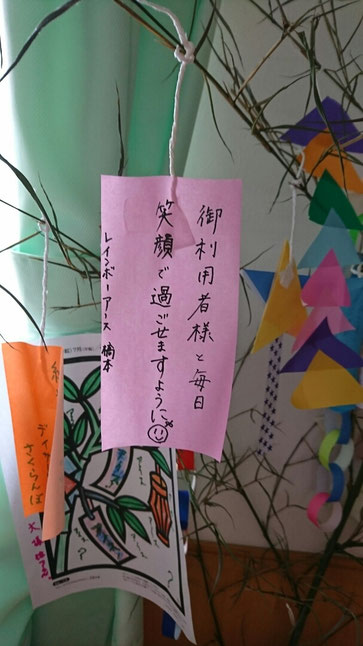 御利用者様と毎日
笑顔で過ごせますように
レインボーアース 橋本
デイ
さくらんぼ